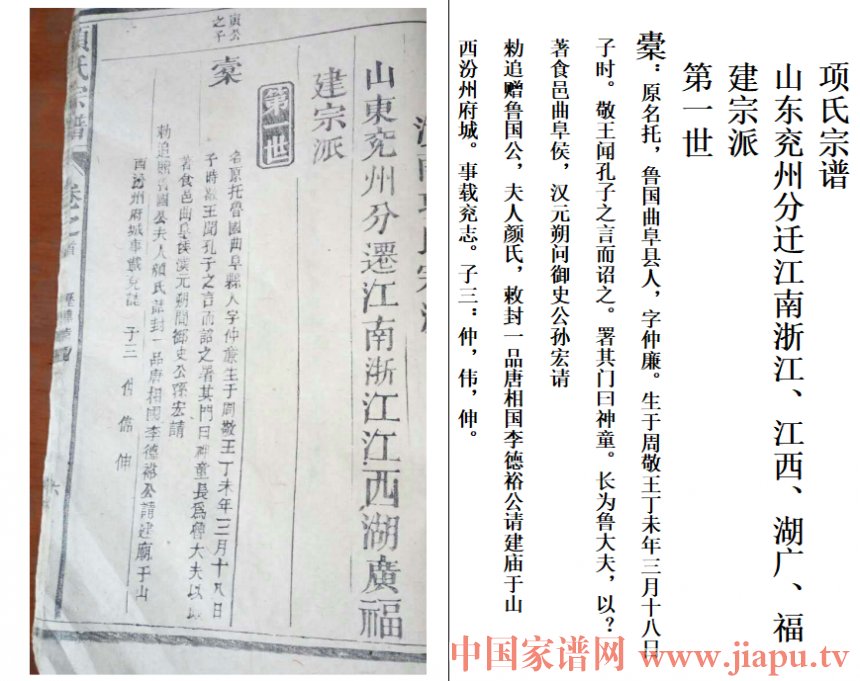 寅公
之子
山東兖州分遷江南浙江江西湖廣福
建宗派
第一世
槖
名原托魯國曲阜縣人字仲廉生于周敬王丁未年三月十八日
子時敬王聞孔子之言而詔之署其門曰神童長爲魯大夫以
著食邑曲阜侯漢元朔間御史公孫宏請
勅追贈魯國公夫人顏氏誥封一品唐相國李德裕公請建廟于山
西汾州府城事載兖誌 子三 伸
項氏宗譜 卷之首
项氏宗谱
山东兖州分迁江南浙江、江西、湖广、福
建宗派
第一世
橐：原名托，鲁国曲阜县人，字仲廉。生于周敬王丁未年三月十八日
子时。敬王闻孔子之言而诏之。署其门曰神童。长为鲁大夫，以？
著食邑曲阜侯，汉元朔问御史公孙宏请
勅追赠鲁国公，夫人颜氏，敕封一品唐相国李德裕公请建庙于山
西汾州府城。事载兖志。子三：仲，伟，伸。
中国家谱网 www.jiapu.tv